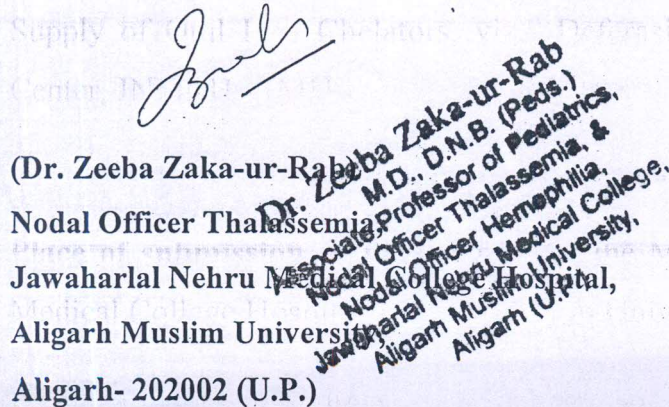 Supply of
Center,
(Dr. Zeeba Zaka-ur-Rab)
Nodal Officer Thalassemia,
Jawaharlal Nehru Medical College Hospital,
Aligarh Muslim University,
Aligarh- 202002 (U.P.)
Dr. Zeeba Zaka-ur-Rab
M.D., D.N.B. (Peds.)
Associate Professor of Pediatrics,
Nodal Officer Thalassemia, &
Nodal Officer Hemophilia,
Jawaharlal Nehru Medical College,
Aligarh Muslim University,
Aligarh (U.P.)
Place of submission
Medical College Hospital